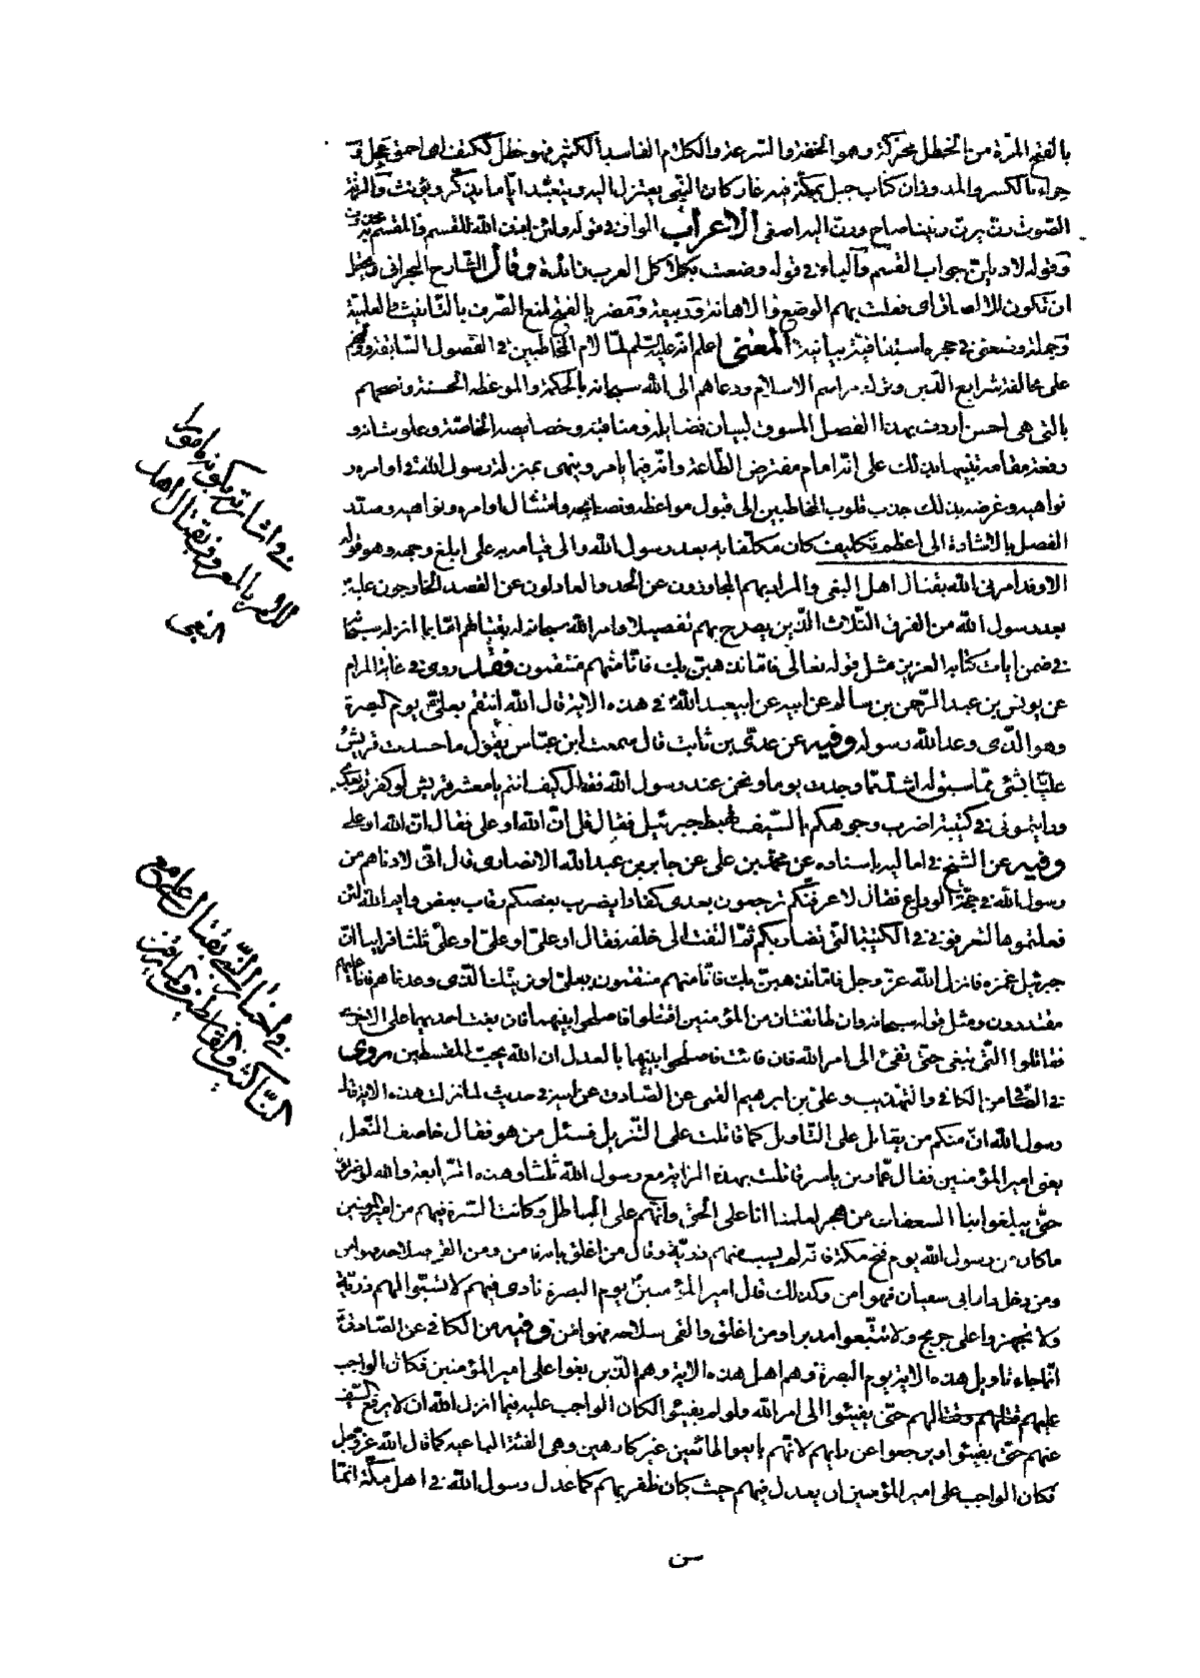 بالفتح المرّة من الخطل محرّكة وهو الخفة والسرعة والكلام الفاسد الكثير فهو خطل ككتف اى احمق عجل و
حراء بالكسر والمد وزان كتاب جبل بمكّة فيه غار كان النبي يعتزل اليه ويتعبّد ايّاما يذكّر ويؤنث والرنّة
الصّوت رنّ يرنّ رنينا صاح ورنّ اليه اصغى الاعراب الواو في قوله ولئن اذن الله للقسم والمقسم به
وقوله لاديلنّ جواب القسم والباء في قوله وضعت بكلاكل العرب زائدة وقال الشارح البحراني ويحتمل
ان تكون للالصاق اى فعلت بهم الوضع والاهانة وربيعة ومضر بالفتح لمنع الصّرف بالتّانيث والعلمية
وجملة وضعني في حجره استينافيّة بيانية المعنى اعلم انّه عليه السّلم لمّا لام المخاطبين في الفصول السّابقة ووبّخهم
على مخالفة شرايع الدّين وترك مراسم الاسلام ودعاهم الى الله سبحانه بالحكمة والموعظة الحسنة ونصحهم
بالتي هي احسن اردف بهذا الفصل المسوق لبيان فضايله ومناقبه وخصايصه الخاصّة وعلوّ شانه و
رفعة مقامه تنبيها بذلك على انّه امام مفترض الطّاعة وانّه فيما يامر وينهى بمنزلة رسول الله في اوامره و
نواهيه وغرضه بذلك جذب قلوب المخاطبين الى قبول مواعظه ونصائحه وامتثال اوامره ونواهيه وصدّر
الفصل بالاشارة الى اعظم تكليف كان مكلّفا به بعد رسول الله والى قيامه به على ابلغ وجهه وهو قوله
الا وقد امرني الله بقتال اهل البغي والمراد بهم المجاوزون عن الحد والعادلون عن القصد الخارجون عليه
بعد رسول الله من الفرق الثّلاث الّذين يصرح بهم تفصيلا وامر الله سبحانه له بقتالهم امّا بما انزله سبحانه
في ضمن ايات كتابه العزيز مثل قوله تعالى فامّا نذهبنّ بك فانّا منهم منتقمون فقد روى في غاية المرام
عن يونس بن عبد الرّحمن بن سالم عن ابيه عن ابيعبد الله في هذه الاية قال الله انتقم بعليّ يوم البصرة
وهو الذى وعد الله رسوله وفيه عن عدىّ بن ثابت قال سمعت ابن عبّاس يقول ما حسدت قريش
عليّا بشئ ممّا سبق له اشدّ ممّا وجدت يوما ونحن عند رسول الله فقال كيف انتم يا معشر قريش لو كفرتم بعدى
ورايتموني في كتيبة اضرب وجوهكم بالسّيف فهبط جبرئيل فقال قل انّ الله او على فقال انّ الله او على
وفيه عن الشيخ في اماليه باسناده عن محمّد بن على عن جابر بن عبد الله الانصارى قال انّى لادناهم من
رسول الله في حجّة الوداع فقال لاعرفنّكم ترجعون بعدى كفارا يضرب بعضكم رقاب بعض وايم الله لئن
فعلتموها لتعرفونني في الكتيبة التي تضاربكم ثمّ التفت الى خلفه فقال او عليّ او عليّ او عليّ ثلثا فراينا انّ
جبرئيل غمزه فانزل الله عزّ وجل فامّا نذهبنّ بك فانّا منهم منتقمون بعليّ او نرينّك الذى وعدناهم فانّا عليهم
مقتدرون ومثل قوله سبحانه وان طائفتان من المؤمنين اقتتلوا فاصلحوا بينهما فان بغت احديهما على الاخرى
فقاتلوا الّتي تبغي حتّى تفئ الى امر الله فان فائت فاصلحوا بينهما بالعدل ان الله يحبّ المقسطين روى
في الصّافي من الكافي والتهذيب وعليّ بن ابرهيم القمى عن الصّادق عن ابيه في حديث لما نزلت هذه الاية قال
رسول الله انّ منكم من يقاتل على التّاويل كما قاتلت على التّنزيل فسئل من هو فقال خاصف النّعل
يعني امير المؤمنين فقال عمّار بن ياسر قاتلت بهذه الرّاية مع رسول الله ثلثا وهذه الرّابعة والله لو ضربونا
حتّى يبلغوا بنا السعفات من هجر لعلمنا انا على الحق وانّهم على الباطل وكانت السّيرة فيهم من امير المؤمنين
ما كان من رسول الله يوم فتح مكّة فانّه لم يسب منهم ذريّة وقال من اغلق بابه فهو امن ومن القى سلاحه فهو امن
ومن دخل دار ابي سفيان فهو امن وكذلك قال امير المؤمنين يوم البصرة نادى فيهم لا تسبّوا لهم ذريّة
ولا تجهزوا على جريح ولا تتّبعوا مدبرا ومن اغلق بابه والقى سلاحه فهو امن وفيه من الكافي عن الصّادق
انّما جاء تاويل هذه الاية يوم البصرة وهم اهل هذه الاية وهم الّذين بغوا على امير المؤمنين فكان الواجب
عليهم قتلهم وقتالهم حتّى يفيئوا الى امر الله ولو لم يفيئوا لكان الواجب عليه فيما انزل الله ان لا يرفع السّيف
عنهم حتّى يفيئوا ويرجعوا عن رايهم لانّهم بايعوا طائعين غير كارهين وهي الفئة الباغية كما قال الله عزّ وجل
فكان الواجب على امير المؤمنين ان يعدل فيهم حيث كان ظفر بهم كما عدل رسول الله في اهل مكّة انّما
في اشارته بكونه مامورا
للامر بالمعروف بقتال اهل
البغى
في اخبار النّبي بقتال علي مع
النّاكثين والقاسطين والمارقين